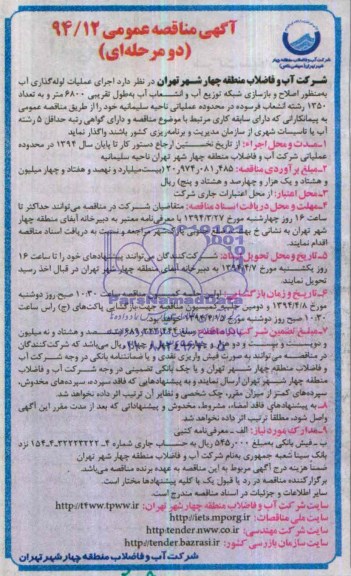 آگهی مناقصه عمومی ۹۴/۱۲
(دو مرحله‌ای)
شرکت آب و فاضلاب منطقه چهار شهر تهران در نظر دارد اجرای عملیات لوله‌گذاری آب
به‌منظور اصلاح و بازسازی شبکه توزیع آب و انشعاب آب به‌طول تقریبی ۶۸۰۰ متر و به تعداد
۱۳۵۰ رشته انشعاب فرسوده در محدوده عملیاتی ناحیه سلیمانیه خود را از طریق مناقصه عمومی
به پیمانکارانی که دارای سابقه کاری مرتبط با موضوع مناقصه و دارای گواهی رتبه حداقل ۵ رشته
آب یا تاسیسات شهری از سازمان مدیریت و برنامه‌ریزی کشور باشند واگذار نماید
۱ـ مدت و محل اجراء: از تاریخ نخستین ارجاع دستور کار تا پایان سال ۱۳۹۴ در محدوده
عملیاتی شرکت آب و فاضلاب منطقه چهار شهر تهران ناحیه سلیمانیه
۲ـ مبلغ برآوردی مناقصه: ۲۰/۹۷۴/۰۸۱/۴۸۵ (بیست‌میلیارد و نهصد و هفتاد و چهار میلیون
و هشتاد و یک هزار و چهارصد و هشتاد و پنج) ریال
۳ـ محل اعتبار: از محل اعتبارات جاری شرکت
۴ـ مهلت و محل دریافت اسناد مناقصه: متقاضیان شرکت در مناقصه می‌توانند حداکثر تا
ساعت ۱۶ روز چهارشنبه مورخ ۱۳۹۴/۳/۲۷ با معرفی‌نامه معتبر به دبیرخانه آبفای منطقه چهار
شهر تهران به نشانی خ بهشت مراجعه و نسبت به دریافت اسناد مناقصه
اقدام نمایند.
۵ـ تاریخ و محل تحویل اسناد: شرکت‌کنندگان می‌توانند پیشنهادهای خود را تا ساعت ۱۶
روز یکشنبه مورخ ۱۳۹۴/۴/۷ به دبیرخانه آبفای منطقه چهار شهر تهران در قبال اخذ رسید
تحویل نمایند.
۶ـ تاریخ و زمان بازگشایی: اولین جلسه کمیسیون مناقصه ساعت ۱۰:۳۰ صبح روز دوشنبه
مورخ ۱۳۹۴/۴/۸ و دومین پاکت‌های (ج) راس ساعت
۱۰:۳۰ صبح روز دوشنبه مورخ
۷ـ مبلغ تضمین شرکت در مناقصه:
ریال می‌باشد که شرکت‌کنندگان
در مناقصه می توانند به صورت فیش واریزی نقدی و یا ضمانتنامه بانکی در وجه شرکت آب
و فاضلاب منطقه چهار شهر تهران و یا چک بانکی تضمینی در وجه شرکت آب و فاضلاب
منطقه چهار شهر تهران ارسال نمایند و به پیشنهادهایی که فاقد سپرده، سپرده‌های مخدوش،
سپرده‌های کمتر از میزان مقرر، چک شخصی و نظایر آن ترتیب اثر داده نخواهد شد.
۸ـ به پیشنهادهای فاقد امضاء، مشروط، مخدوش و پیشنهاداتی که بعد از مدت مقرر این آگهی
واصل شود، مطلقاً ترتیب اثر داده نخواهد شد.
۹ـ مدارک مورد نیاز: الف ـ معرفی‌نامه کتبی
ب ـ فیش بانکی به‌مبلغ ۵۴۵/۰۰۰ ریال به حساب جاری شماره
بانک سینا شعبه جمهوری به‌نام شرکت آب و فاضلاب منطقه چهار شهر تهران
ضمناً هزینه درج آگهی مربوط به این مناقصه به عهده برنده مناقصه می‌باشد.
برگزارکننده مناقصه در رد یا قبول یک یا کلیه پیشنهادها مختار است.
سایر اطلاعات و جزئیات در اسناد مناقصه مندرج است.
سایت شرکت آب و فاضلاب منطقه چهار شهر تهران: http://t4ww.tpww.ir
سایت ملی مناقصات: http://iets.mporg.ir
سایت شرکت مهندسی: http://tender.nww.co.ir
سایت سازمان بازرسی کشور: http://tender.bazrasi.ir
شرکت آب و فاضلاب منطقه چهار شهر تهران